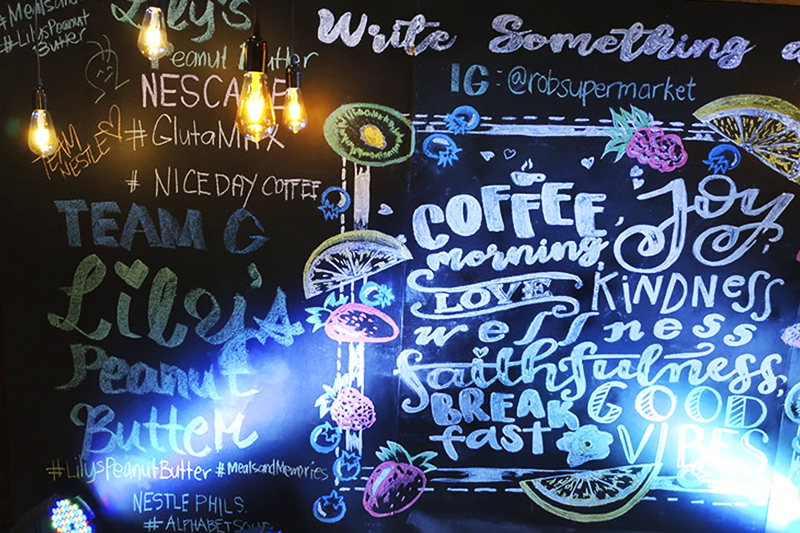 #Mealsand
#LilysPeanut
Butter
Lily's
Peanut Butter
NESCAFE
#GlutaMAX
TEAM
NESTLE
# NICEDAY COFFEE
TEAM G
Lily's
Peanut
Butter
#LilysPeanutButter #MealsandMemories
NESTLE PHILS.
Write Something a
IG: @robsupermarket
COFFEE, Joy
morning,
LOVE KINDNESS
wellness
faithfulness,
BREAK GOOD
fast VIBES